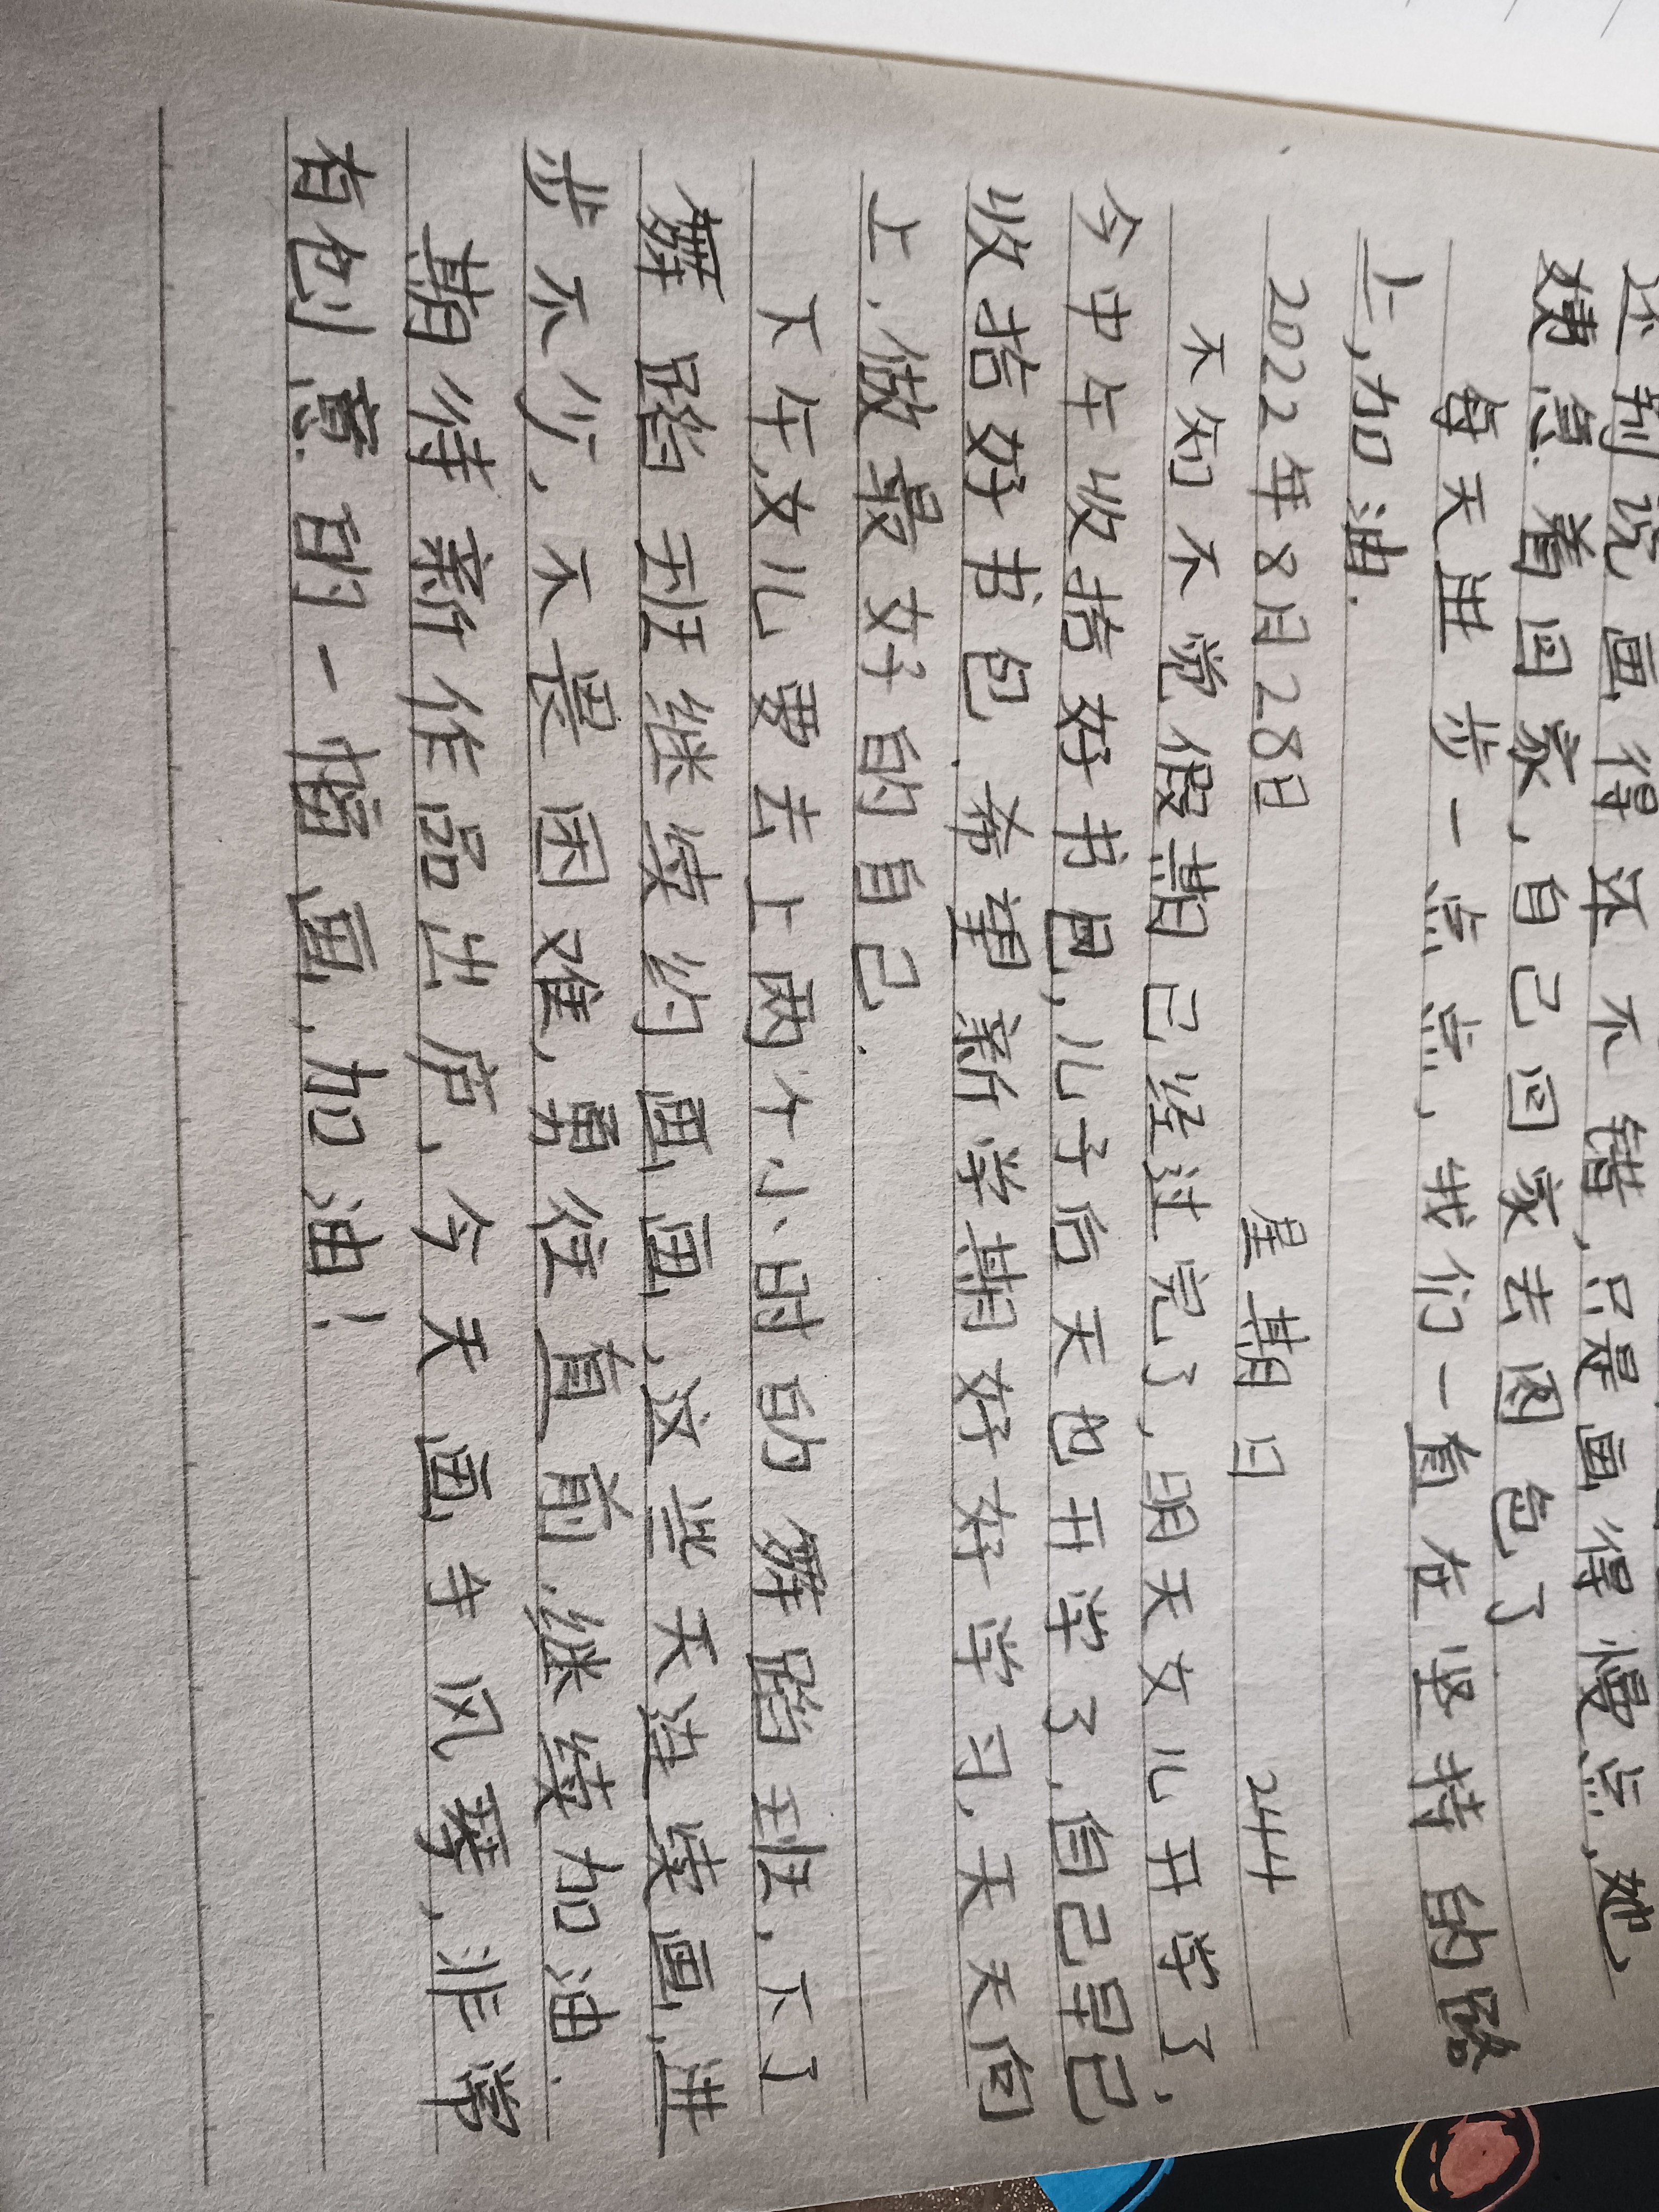 还别说画得还不错,只是画得慢点,她
姨急着回家,自己回家去图包了
每天进步一点点,我们一直在坚持的路
上,加油.
2022年8月28日 星期日 244
不知不觉假期已经过完了,明天女儿开学了,
今中午收拾好书包,儿子后天也开学了.自己早已
收拾好书包.希望新学期好好学习,天天向
上.做最好的自己.
下午女儿要去上两个小时的舞蹈班,下了
舞蹈班继续约画画.这些天连续画,进
步不少.不畏困难,勇往直前.继续加油.
期待新作品出庐,今天画寺风琴,非常
有创意的一幅画,加油!